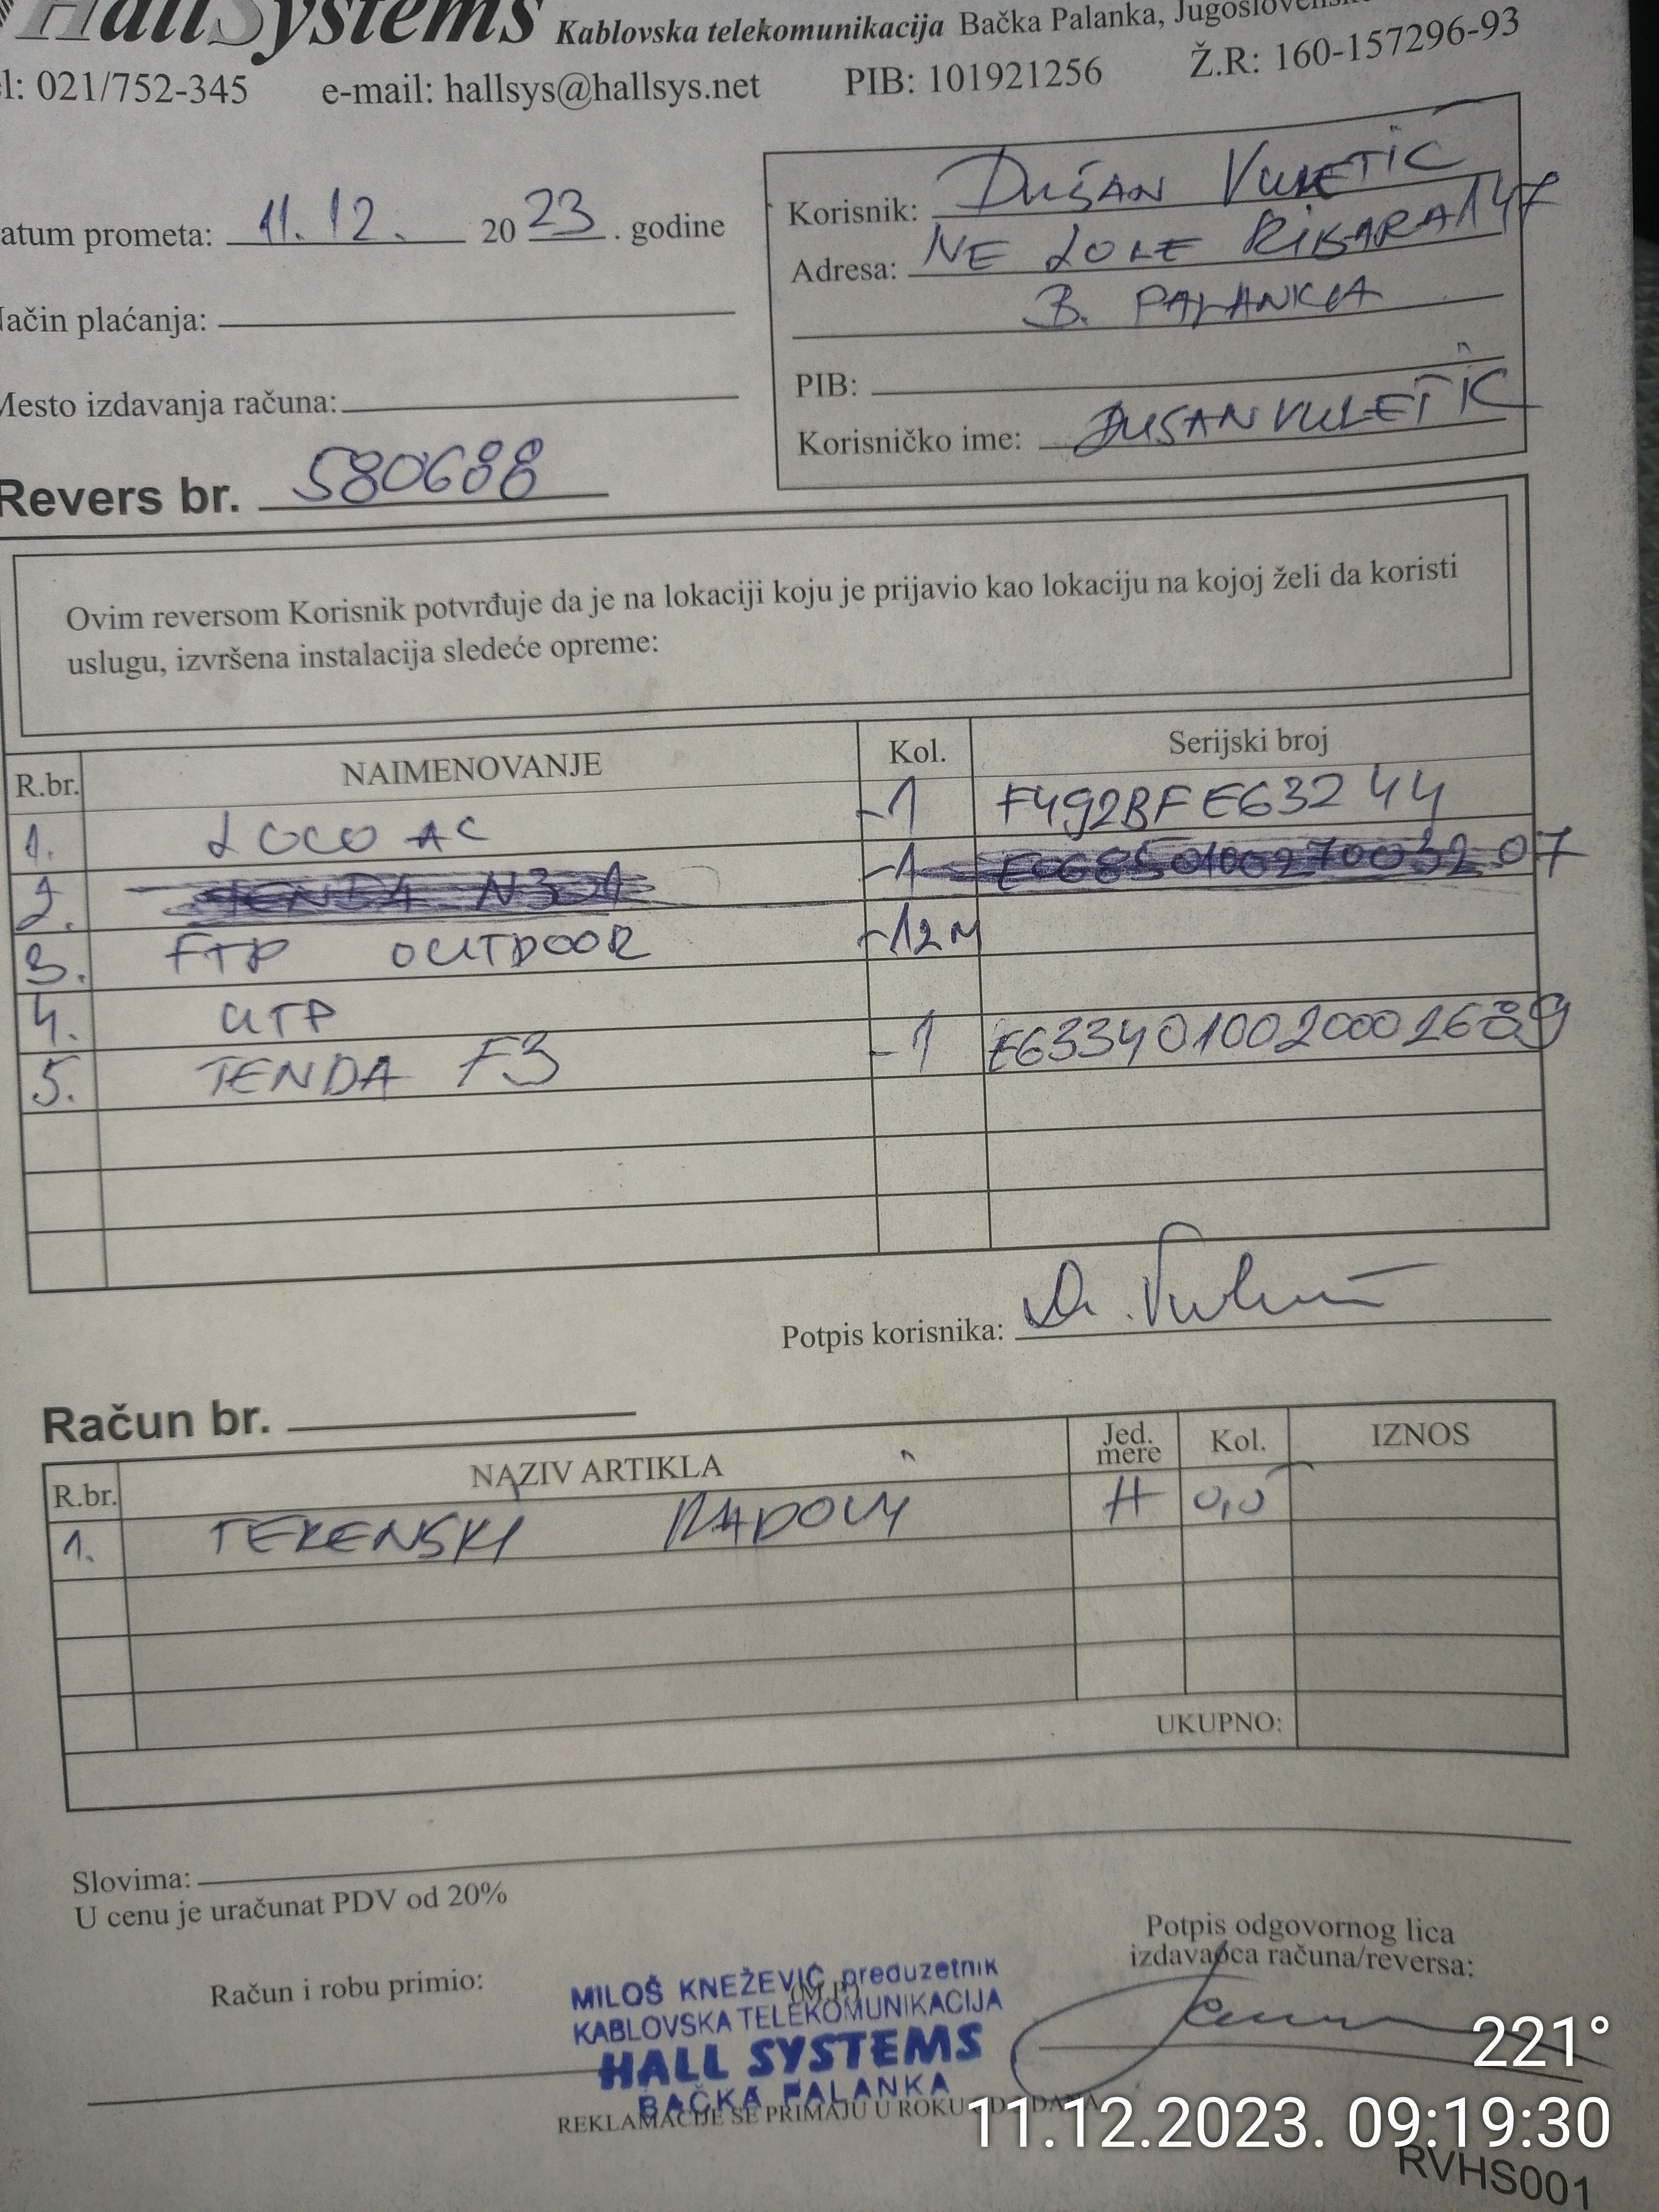 HallSystems Kablovska telekomunikacija Bačka Palanka,
l: 021/752-345 e-mail: hallsys@hallsys.net PIB: 101921256 Ž.R: 160-157296-93
atum prometa: 11.12. 2023. godine
Korisnik: DUŠAN VULETIĆ
Adresa: NE LOLE RIBARA 147
B. PALANKA
ačin plaćanja:
PIB:
Mesto izdavanja računa:
Korisničko ime: DUSANVULETIC
Revers br. 580688
Ovim reversom Korisnik potvrđuje da je na lokaciji koju je prijavio kao lokaciju na kojoj želi da koristi
uslugu, izvršena instalacija sledeće opreme:
R.br. NAIMENOVANJE Kol. Serijski broj
1. LOCO AC -1 F492BFE63244
2. TENDA N301 -1 07
3. FTP OUTDOOR -12M
4. UTP
5. TENDA F3 -1 E6334010020002689
Potpis korisnika:
Račun br.
R.br. NAZIV ARTIKLA Jed. mere Kol. IZNOS
1. TERENSKI RADOVI H 0,5
UKUPNO:
Slovima:
U cenu je uračunat PDV od 20%
Potpis odgovornog lica
izdavaoca računa/reversa:
Račun i robu primio:
(M.P.)
MILOŠ KNEŽEVIĆ preduzetnik
KABLOVSKA TELEKOMUNIKACIJA
HALL SYSTEMS
BAČKA PALANKA
REKLAMACIJE SE PRIMAJU U ROKU
221°
11.12.2023. 09:19:30
RVHS001